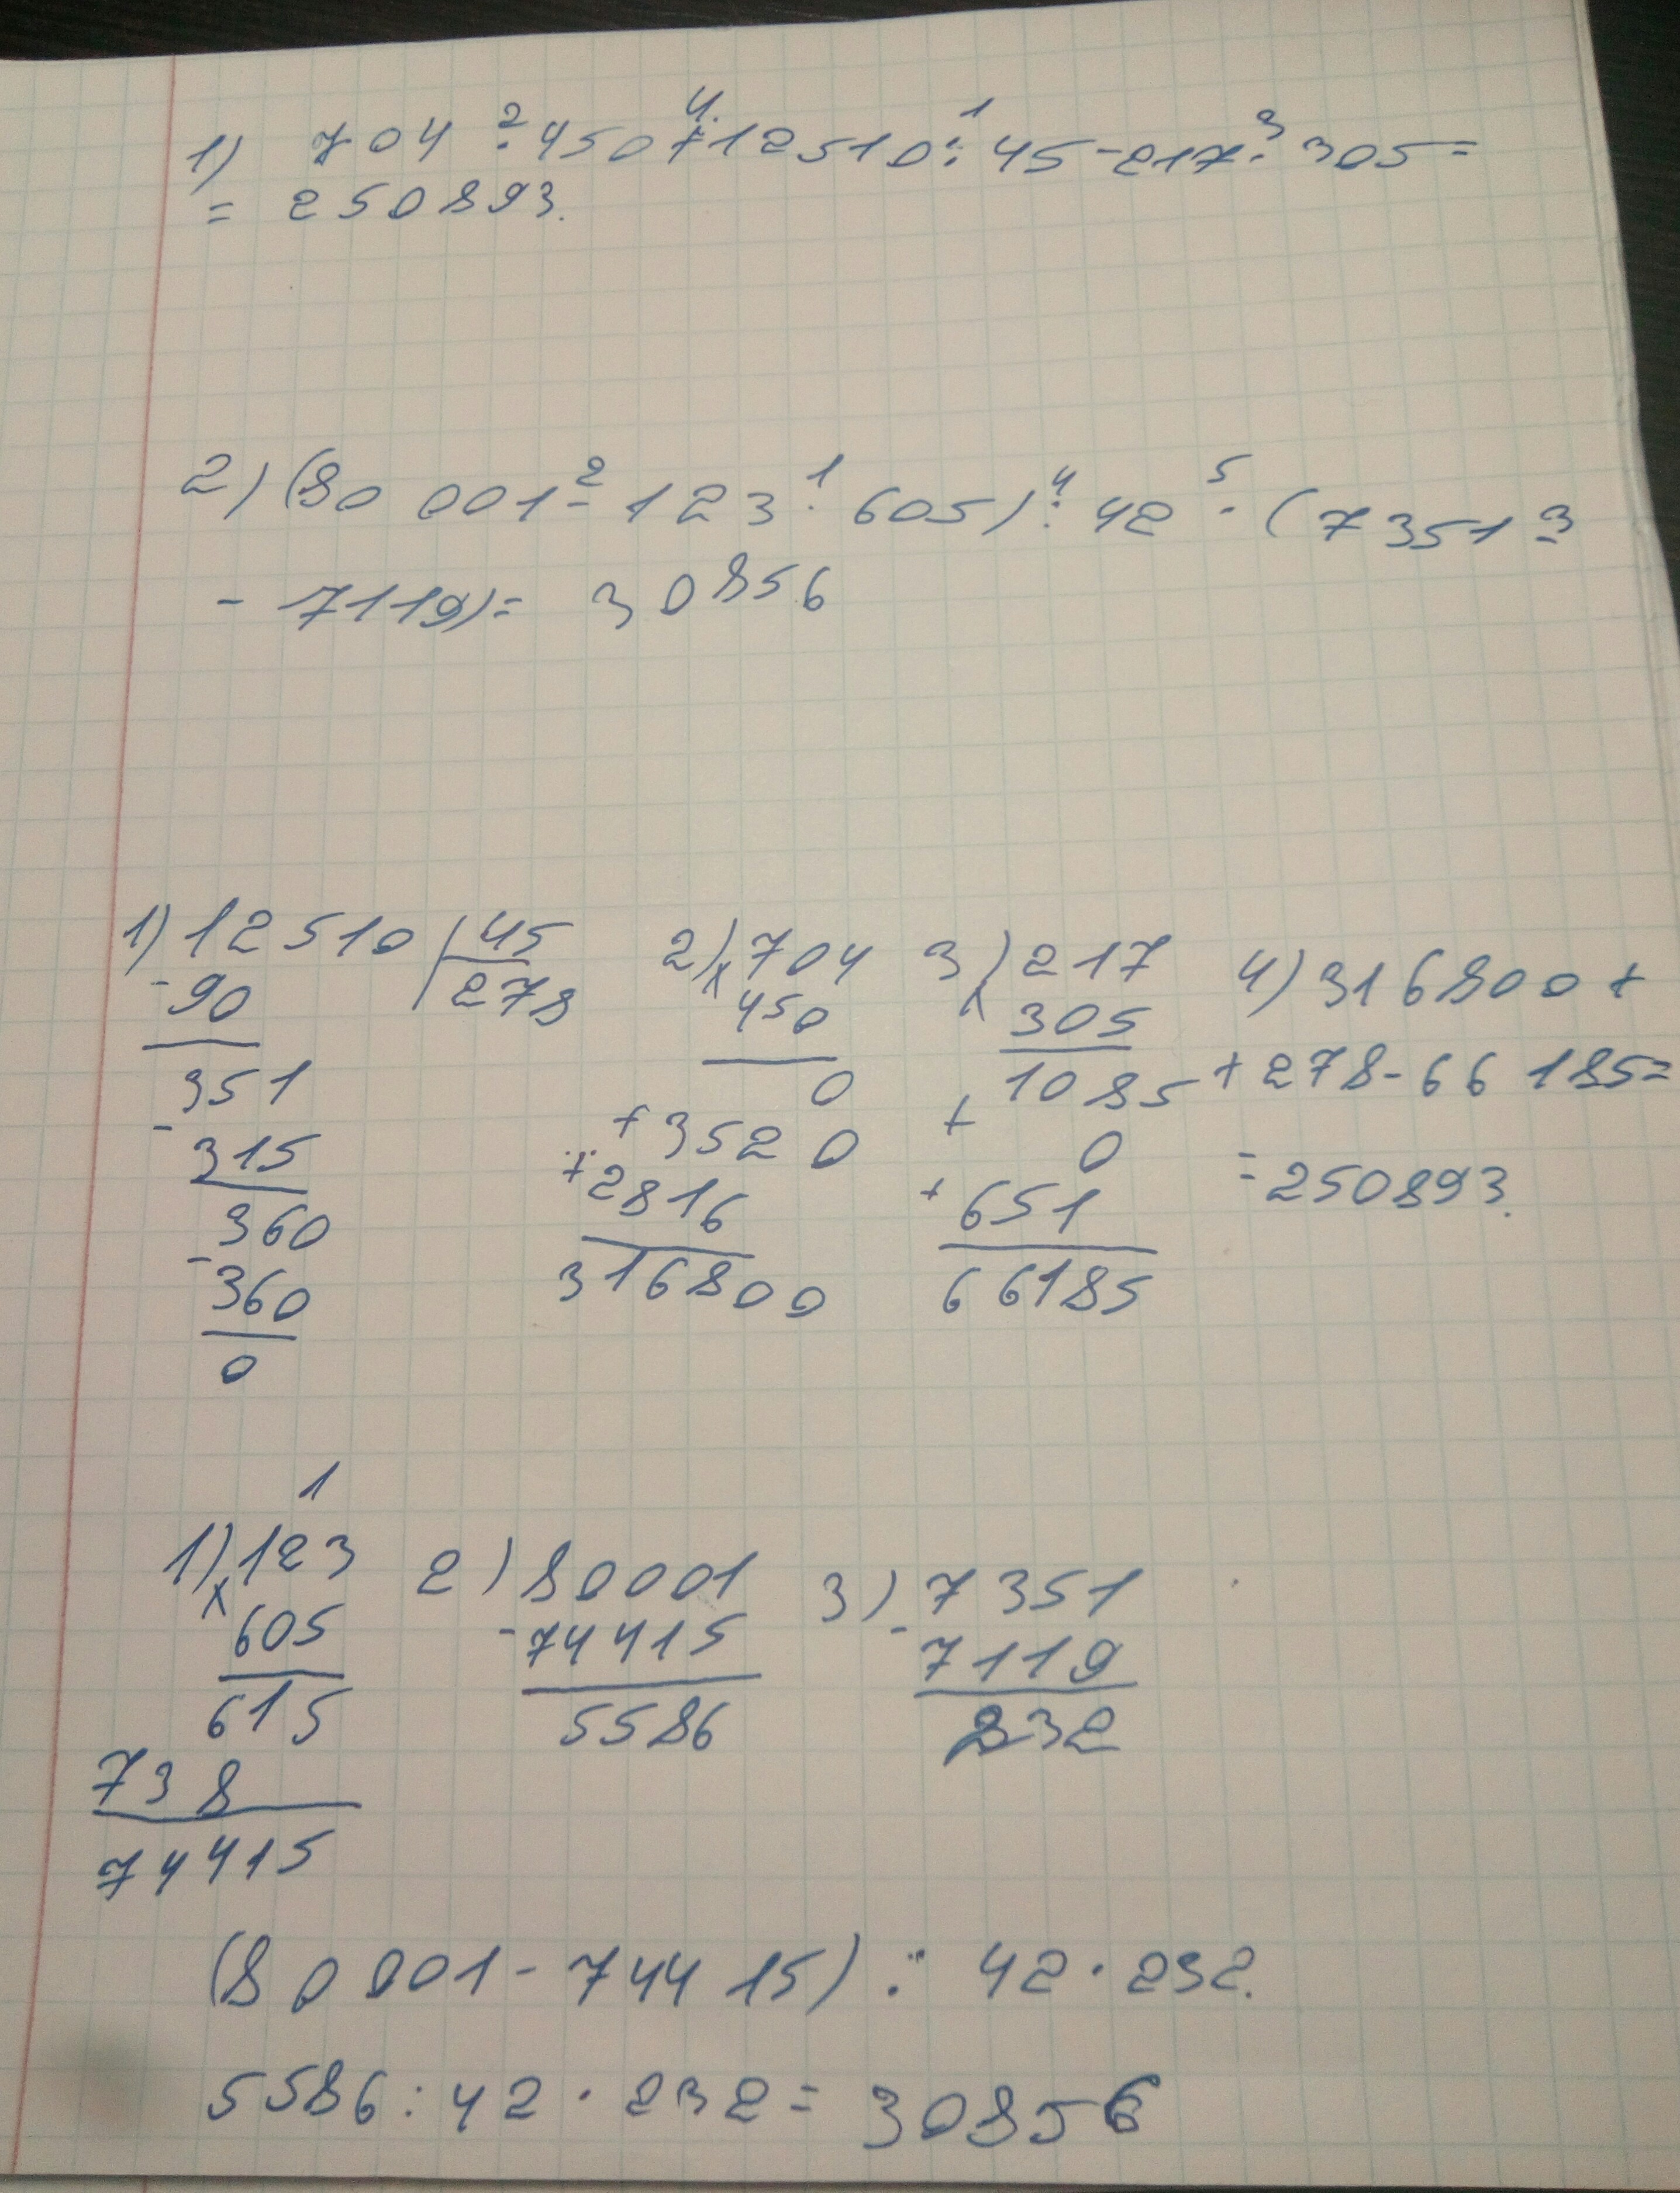 1) 704 ² · 450 ⁴ + 12510 ¹ : 45 - 217 ³ · 305 =
= 250893.
2) (80 001 ² - 123 ¹ · 605) ⁴ : 42 ⁵ · (7351 ³ -
- 7119) = 30856
1) 12510 | 45
- 90
278
351
- 315
360
- 360
0
2) x 704
450
0
+ 3520 0
+ 2816
316800
3) x 217
305
1085
+ 0
+ 651
66185
4) 316800 +
+ 278 - 66 185 =
= 250893.
1
1) x 123
605
615
738
74415
2) 80001
- 74415
5586
3) - 7351
7119
232
(80 001 - 744 15) : 42 · 232.
5586 : 42 · 232 = 30856